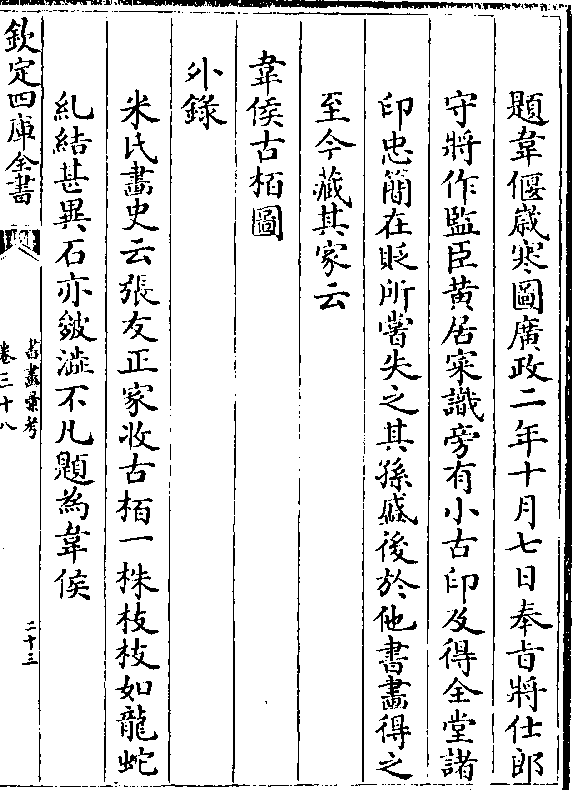 題韋偃歳寒圖廣政二年十月七日奉㫖將仕郎
守將作監臣黄居寀識旁有小古印及得全堂諸
印忠簡在貶所嘗失之其孫盛後於他書畫得之
至今藏其家云
韋侯古栢圖
外錄
米氏畫史云張友正家收古栢一株枝枝如龍蛇
糺結甚異石亦皴澁不凡題為韋侯
欽定四庫全書
書畫彚考
卷三十八
二十三